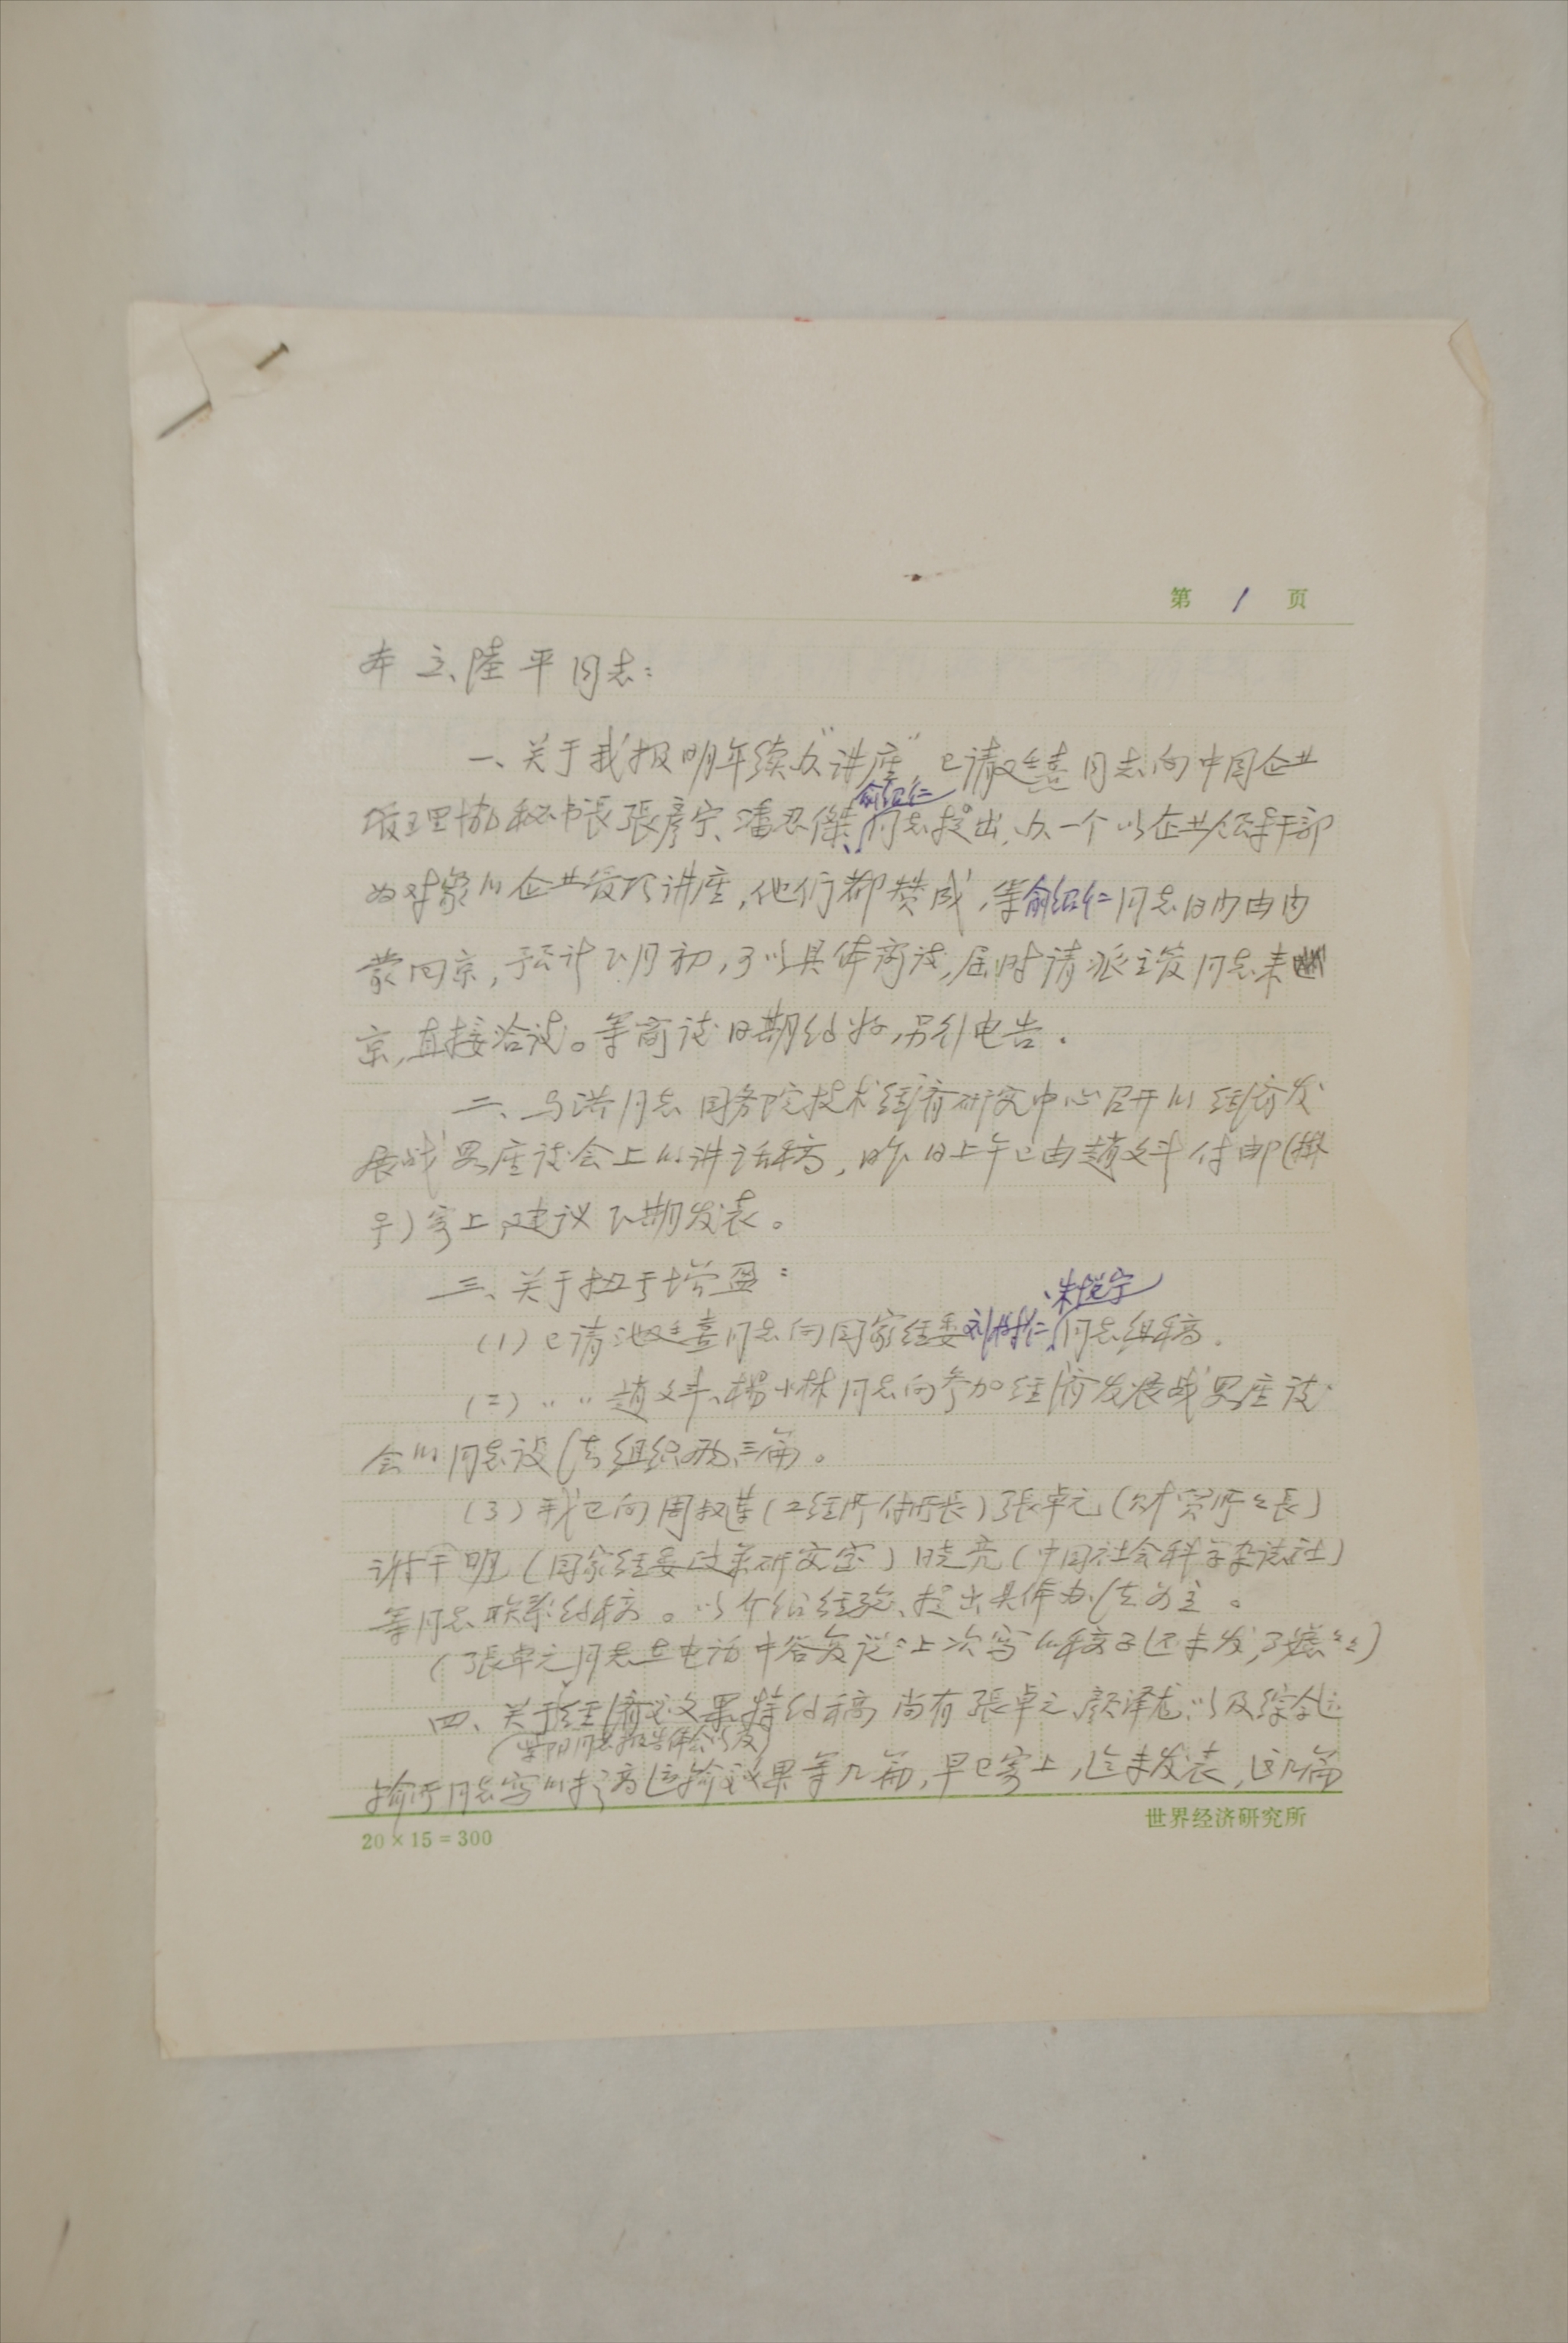 第 1 页
本立、陆平同志：
一、关于我报明年续办“讲座”已请廷熹同志向中国企业
管理协秘书长張彦宁、潘忍傑、俞绍仁同志提出，办一个以企业领导干部
为对象的企业管理讲座，他们都赞成，等俞绍仁同志日内由内
蒙回京，预计下月初，可以具体商谈，届时请派主发同志来
京，直接洽谈。等商谈日期约好，另行电告．
二、马洪同志国务院技术经济研究中心召开的经济发
展战略座谈会上的讲话稿，昨日上午已由趙文斗付邮（掛
号）寄上，建议下期发表。
三、关于扭亏增盈：
（1）已请池廷熹同志向国家经委刘树仁、朱鎧宇同志组稿．
（2）〃 〃 趙文斗、楊小林同志向参加经济发展战略座谈
会的同志设法组织两、三篇。
（3）我已向周叔莲（工经所付所长）張卓元（财贸所〻長）
谢千明（国家经委政策研究室）晓亮（中国社会科学杂志社）
等同志联系约稿。以介绍经验、提出具体办法为主。
（張卓元同志在电话中答复说：上次写的稿子还未发，
四、关于经济效果，特约稿尚有張卓元、颜泽龙，以及综合运
同志报告
输所同志写的提高运输效果等几篇，早已寄上，迄未发表，这几篇
20×15＝300
世界经济研究所